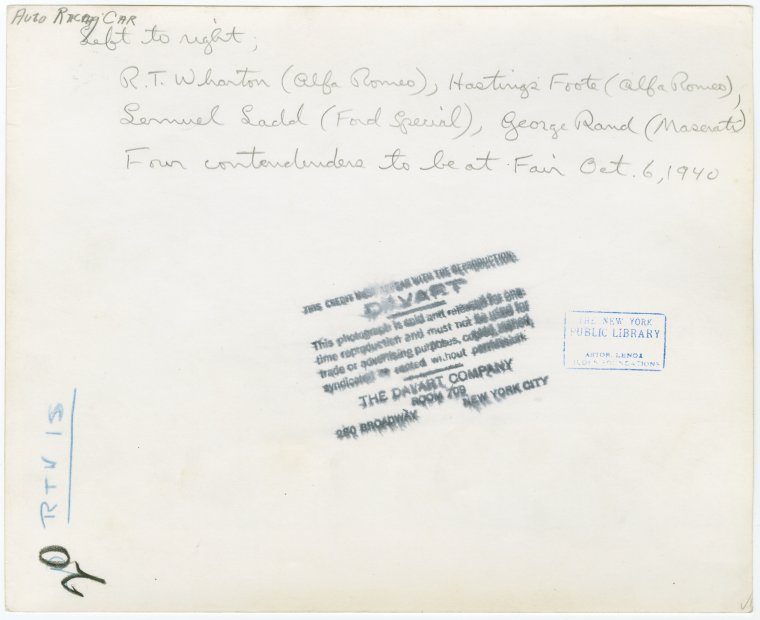 AUTO RACING CAR
Left to right;
R.T. Wharton (Alfa Romeo), Hastings Foote (Alfa Romeo),
Lemuel Ladd (Ford Special), George Rand (Maserati)
Four contendenders to be at Fair Oct. 6, 1940
THIS CREDIT MUST APPEAR WITH THE REPRODUCTION
DAVART
This photograph is sold and released for one-
time reproduction and must not be used for
trade or advertising purposes,
syndicated or rented without permission.
THE DAVART COMPANY
ROOM 709
280 BROADWAY NEW YORK CITY
THE NEW YORK
PUBLIC LIBRARY
ASTOR, LENOX
TILDEN FOUNDATIONS
RTW 15